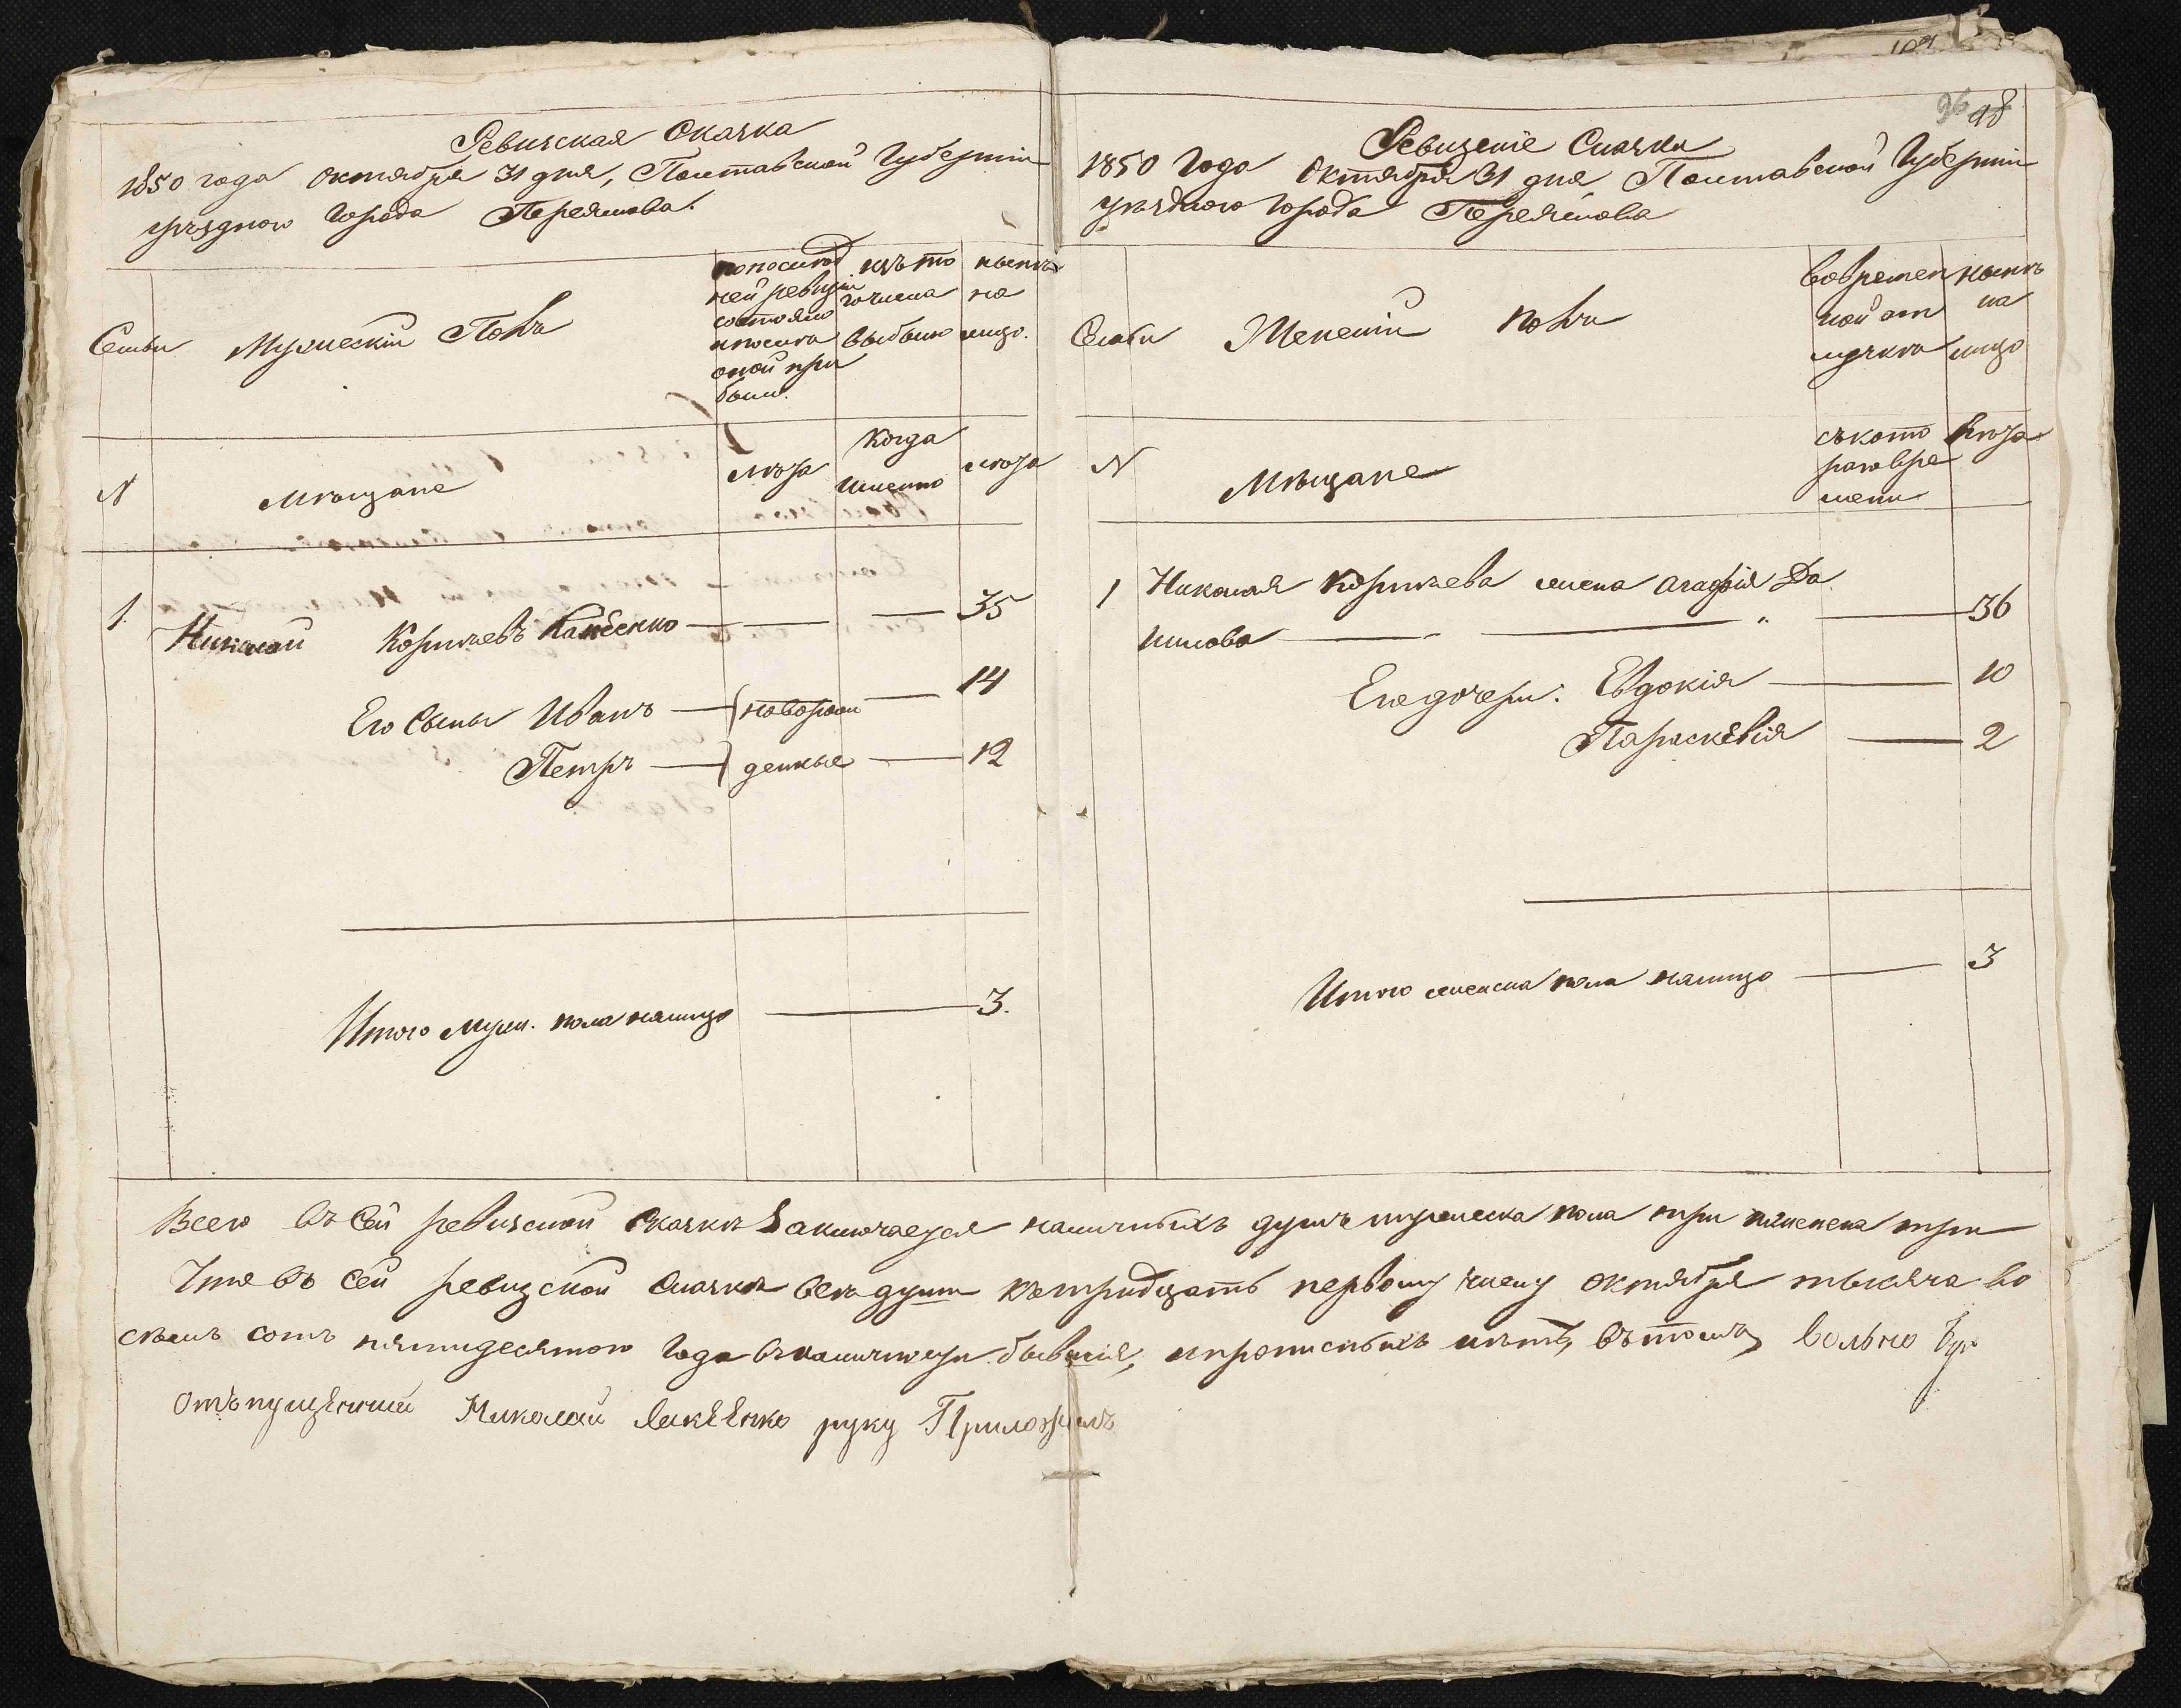 Ревизская Сказка
1850 года Октября 31 дня, Полтавской Губернии
уѣзднаго Города Переяслова.
Семьи
Мужескій Полъ
попослѣд
ней ревизіи
состояло
ипослѣ
оной при
было.
изъ то
гочисла
выбыло
нынѣ
на
лицо.
N
Мѣщане
Лѣта
Когда
именно
лѣта
1.
Николай Корнѣевъ — — 35
Его Сыны Иванъ — новорож — 14
Петръ — денные — 12
Итого Муж. пола налицо — 3.
96 98
Ревизские Сказки
1850 Года Октября 31 дня Полтавской Губерніи
уѣзднаго Города Переяслова
Семьи
Женскій полъ
Вовремен
ной от
лучкѣ
нынѣ
на
лицо
N
Мѣщане
съкото
раговре
мени
Лѣта
1 Николая Корнѣева жена Агафія Да
нилова — — — 36
Его дочери: Евдокія — 10
Параскевія — 2
Итого женска пола налицо — 3
Всего въ сей ревизской Сказкѣ Заключается наличныхъ душъ мужеска пола три иженска три
Что въ сей ревизской Сказкѣ всѣ души къ тридцать первому числу октября тысяча во
сѣмъ сотъ пятидесятого Года вналичности бывшія, ипрописныхъ нѣтъ, въ томъ вольно
отъпущенный Николай руку Приложилъ